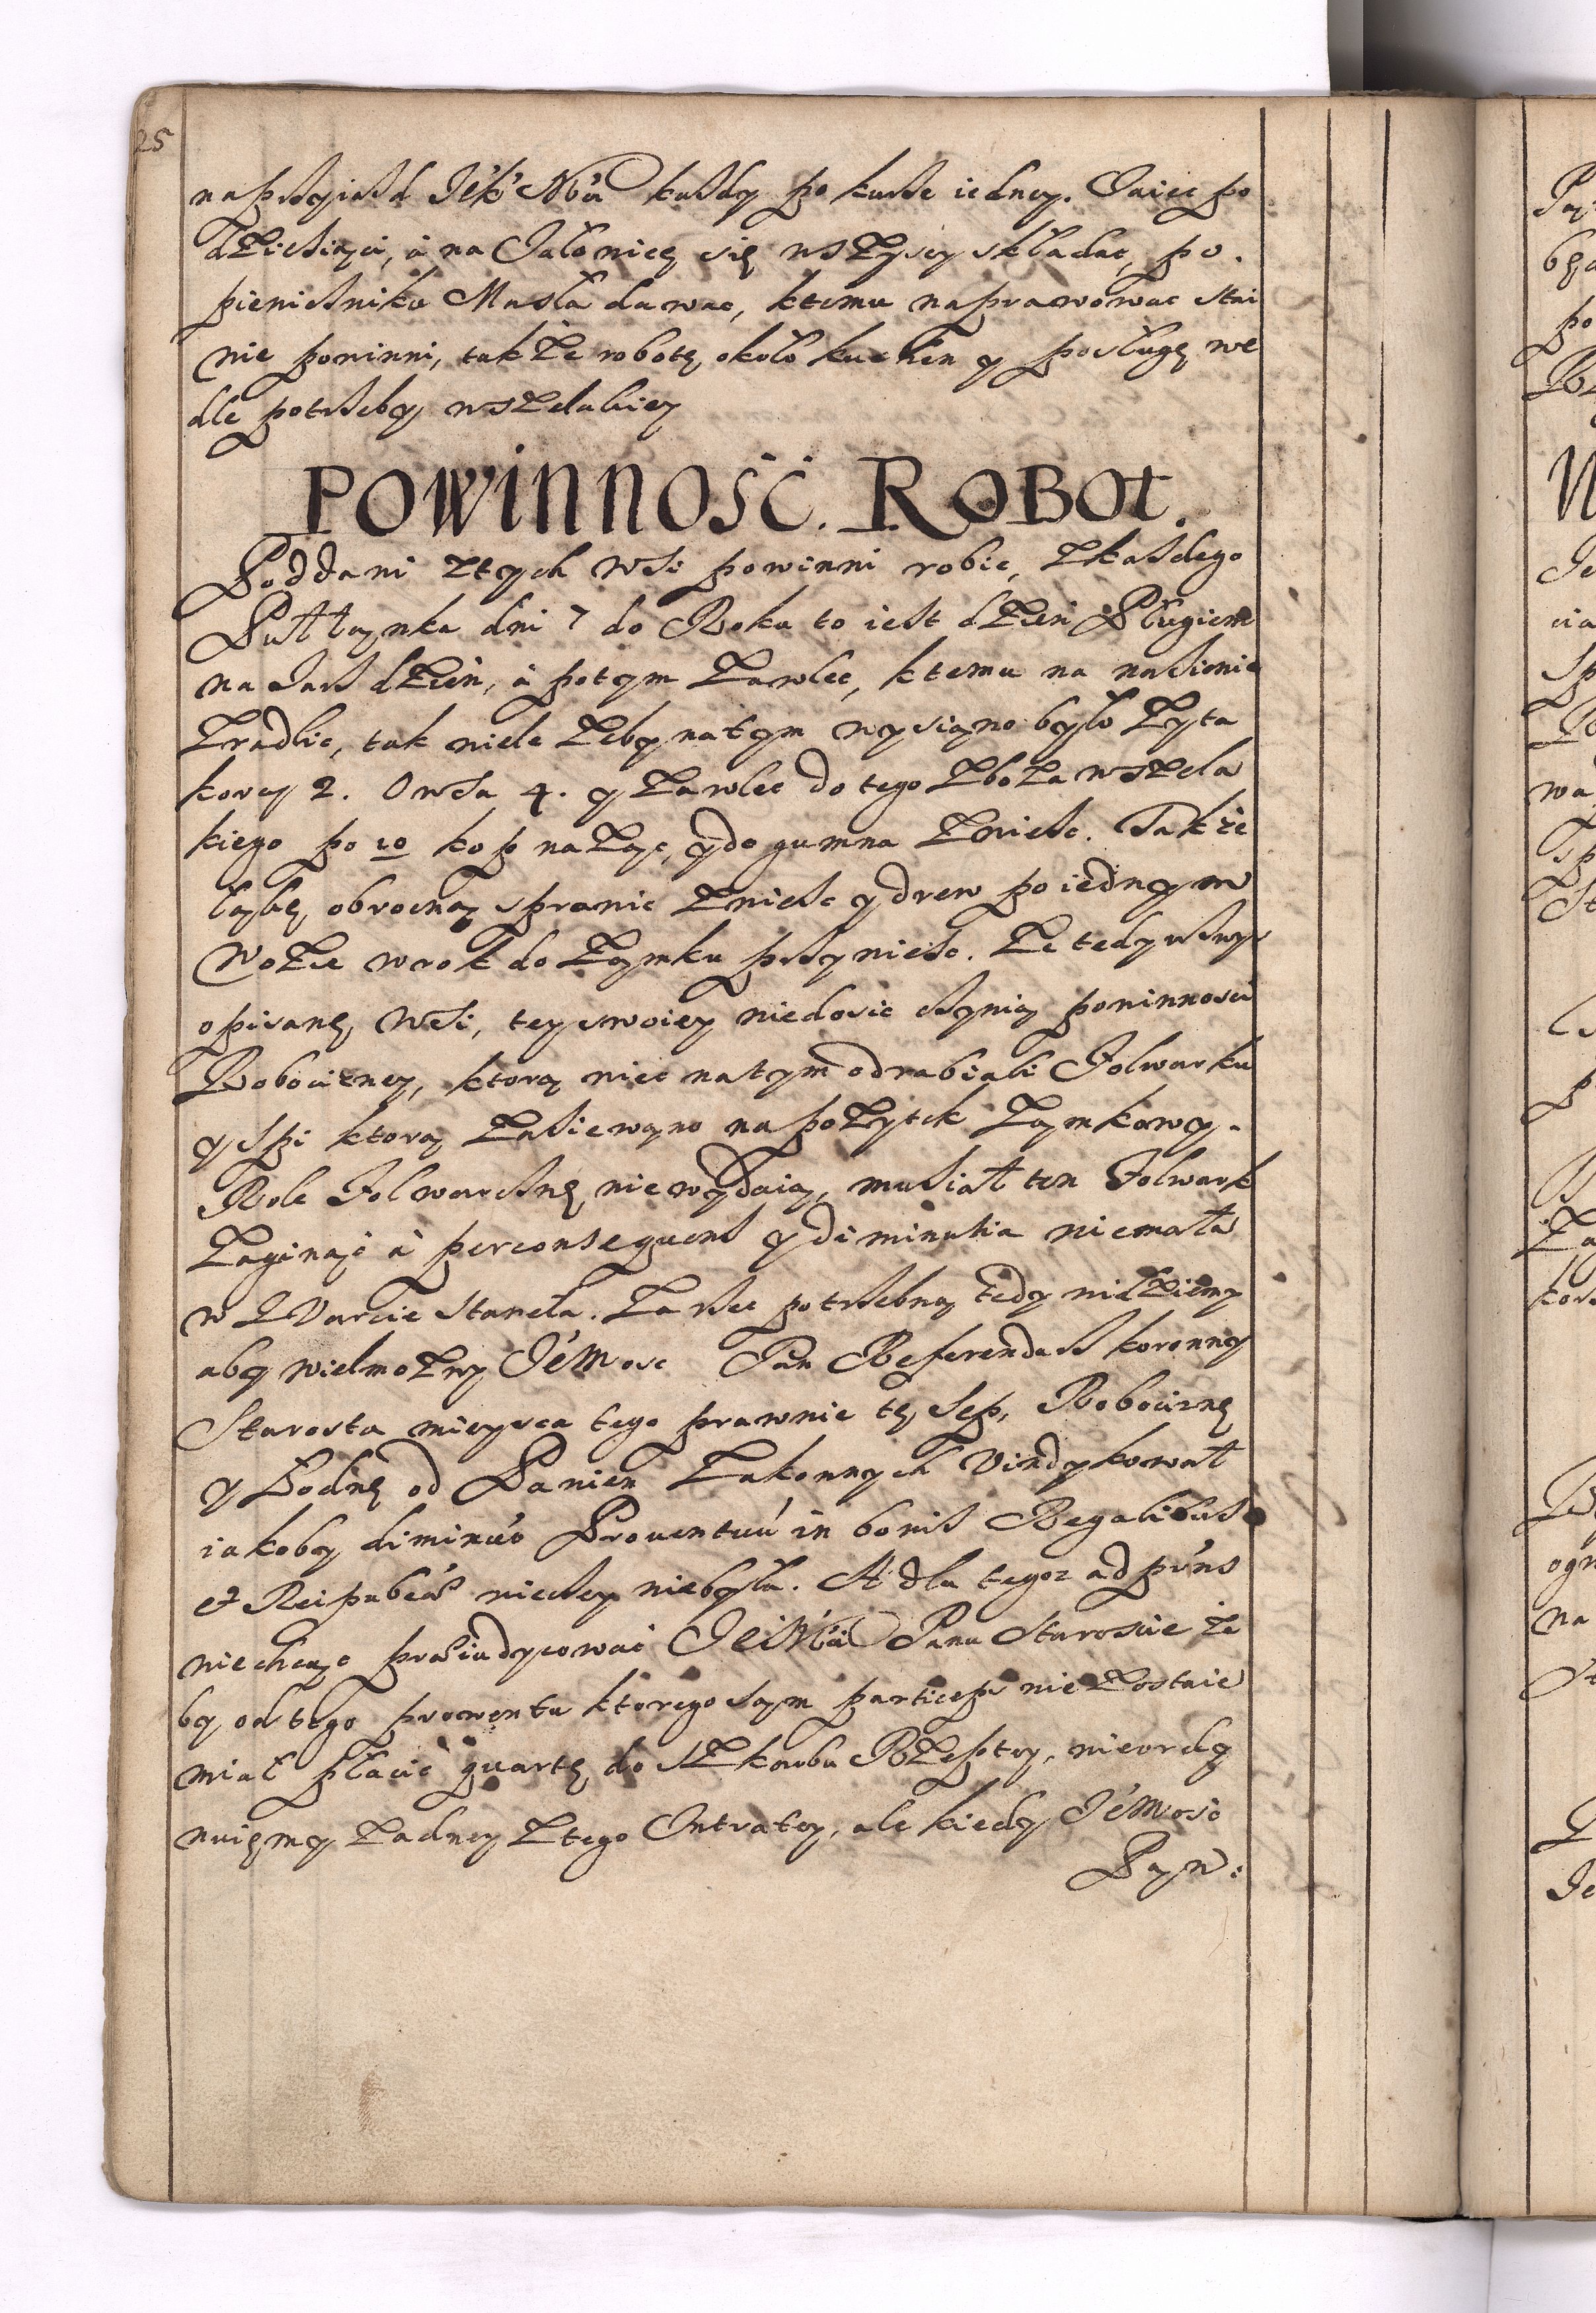 25
na przyiazd JeKo Mći każdy po kurze iedney. Jaiec po
dziesiąci, á na Jałowicę się wszyscy składać, po
pieniężniku Masła dawac, ktemu naprawować stai
nie powinni, także robotę około kuchen y posługę we
dle potrzeby wszelakiey
POWINNOSC. ROBOT.
Poddani z tych wsi powinni robic, z każdego
Puł łaynka dni 7 do Roku to iest dzień Pługiem
na dzień, á potym zawlec, ktemu na nasienie
zradlic, tak wiele żeby natym wysiąno było żyta
korcy 2. Owsa 4. y zawlec do tego zboża wszela
kiego po 10 kop nażąc, y do gumna zniesc. Także
obroczną sprawic zniesc y drew po iednym
Wozie w rok do Zamku przyniesc. Ze tedy
opisane, Wsi, tey swoiey niedosic czynią powinnosci
Robocizney, ktorą niec natym odrabiali Folwarku
y Spi ktorą zasiewano na pożytek Zamkowy.
Role Folwarczne niewydaią, musiał ten Folwark
zaginąć á per consequens y diminutia niemała
w Kwarcie staneła. Za rzec potrzebną tedy widziemy
aby wielmożny JéMosc Pan Referendarz koronny
Starosta mieysca tego prawnie tę Sep, Robociznę
y od Panien Zakonnych Vindykował
iakoby diminuo Prouentuú in bonis Regalibus
et Reipubcæ niebyła. A dla tegoz ad pŕns
niechcąc præiudycować JeiMći Panu Staroscie że
by od tego prowentu ktorego sam particeps nie zostaie
miał płacić quartę do Szkarbu Rzeptey, nieordy
nuiemy żadney z tego Intraty, ale kiedy JéMosc
Pan: